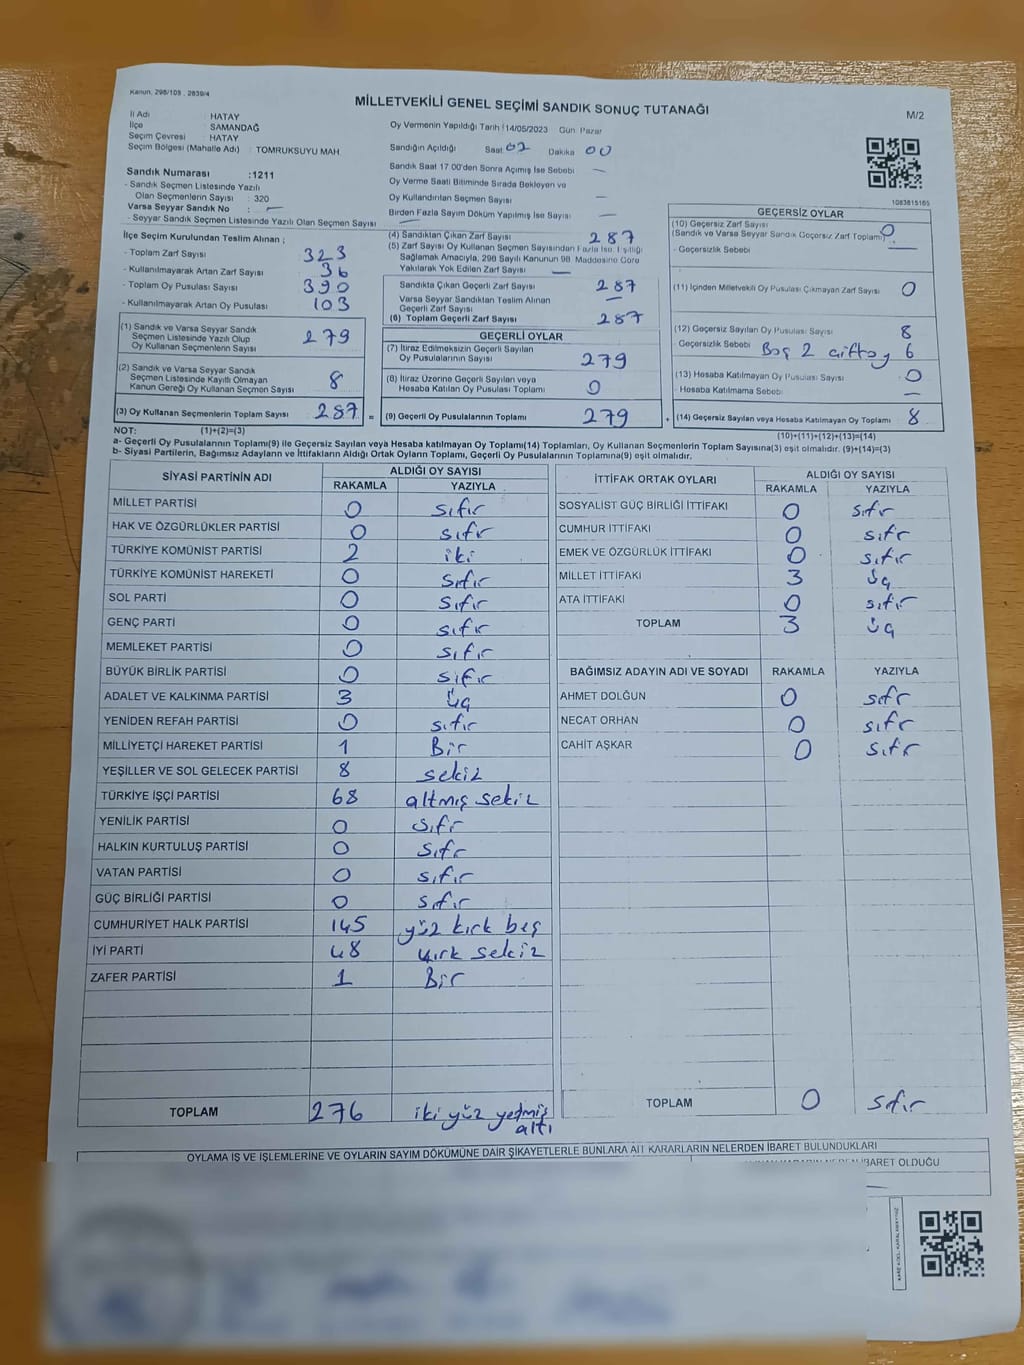 Kanun, 298/103 , 2839/4
MİLLETVEKİLİ GENEL SEÇİMİ SANDIK SONUÇ TUTANAĞI
M/2
İl Adı : HATAY
İlçe SAMANDAĞ
Seçim Çevresi : HATAY
Seçim Bölgesi (Mahalle Adı) : TOMRUKSUYU MAH.
Oy Vermenin Yapıldığı Tarih :14/05/2023 Gün: Pazar
Sandığın Açıldığı Saat 02 Dakika 00
Sandık Saat 17:00'den Sonra Açılmış İse Sebebi —
Oy Verme Saati Bitiminde Sırada Bekleyen ve
Oy Kullandırılan Seçmen Sayısı —
Birden Fazla Sayım Döküm Yapılmış İse Sayısı —
1083815165
Sandık Numarası :1211
- Sandık Seçmen Listesinde Yazılı
Olan Seçmenlerin Sayısı : 320
Varsa Seyyar Sandık No : —
- Seyyar Sandık Seçmen Listesinde Yazılı Olan Seçmen Sayısı
İlçe Seçim Kurulundan Teslim Alınan ;
- Toplam Zarf Sayısı 323
- Kullanılmayarak Artan Zarf Sayısı 36
- Toplam Oy Pusulası Sayısı 390
- Kullanılmayarak Artan Oy Pusulası 103
(1) Sandık ve Varsa Seyyar Sandık
Seçmen Listesinde Yazılı Olup
Oy Kullanan Seçmenlerin Sayısı 279
(2) Sandık ve Varsa Seyyar Sandık
Seçmen Listesinde Kayıtlı Olmayan
Kanun Gereği Oy Kullanan Seçmen Sayısı 8
(3) Oy Kullanan Seçmenlerin Toplam Sayısı 287 =
(4) Sandıktan Çıkan Zarf Sayısı 287
(5) Zarf Sayısı Oy Kullanan Seçmen Sayısından Fazla İse, Eşitliği
Sağlamak Amacıyla, 298 Sayılı Kanunun 98. Maddesine Göre
Yakılarak Yok Edilen Zarf Sayısı —
Sandıkta Çıkan Geçerli Zarf Sayısı 287
Varsa Seyyar Sandıktan Teslim Alınan
Geçerli Zarf Sayısı —
(6) Toplam Geçerli Zarf Sayısı 287
GEÇERLİ OYLAR
(7) İtiraz Edilmeksizin Geçerli Sayılan
Oy Pusulalarının Sayısı 279
(8) İtiraz Üzerine Geçerli Sayılan veya
Hesaba Katılan Oy Pusulası Toplamı 0
(9) Geçerli Oy Pusulalarının Toplamı 279 +
GEÇERSİZ OYLAR
(10) Geçersiz Zarf Sayısı
(Sandık ve Varsa Seyyar Sandık Geçersiz Zarf Toplamı) 0
- Geçersizlik Sebebi —
(11) İçinden Milletvekili Oy Pusulası Çıkmayan Zarf Sayısı 0
(12) Geçersiz Sayılan Oy Pusulası Sayısı 8
- Geçersizlik Sebebi Boş 2 çiftoy 6
(13) Hesaba Katılmayan Oy Pusulası Sayısı 0
- Hesaba Katılmama Sebebi —
(14) Geçersiz Sayılan veya Hesaba Katılmayan Oy Toplamı 8
NOT: (1)+(2)=(3)
(10)+(11)+(12)+(13)=(14)
a- Geçerli Oy Pusulalarının Toplamı(9) ile Geçersiz Sayılan veya Hesaba katılmayan Oy Toplamı(14) Toplamları, Oy Kullanan Seçmenlerin Toplam Sayısına(3) eşit olmalıdır. (9)+(14)=(3)
b- Siyasi Partilerin, Bağımsız Adayların ve İttifakların Aldığı Ortak Oyların Toplamı, Geçerli Oy Pusulalarının Toplamına(9) eşit olmalıdır.
SİYASİ PARTİNİN ADI ALDIĞI OY SAYISI
RAKAMLA YAZIYLA
MİLLET PARTİSİ 0 sıfır
HAK VE ÖZGÜRLÜKLER PARTİSİ 0 sıfır
TÜRKİYE KOMÜNİST PARTİSİ 2 iki
TÜRKİYE KOMÜNİST HAREKETİ 0 sıfır
SOL PARTİ 0 sıfır
GENÇ PARTİ 0 sıfır
MEMLEKET PARTİSİ 0 sıfır
BÜYÜK BİRLİK PARTİSİ 0 sıfır
ADALET VE KALKINMA PARTİSİ 3 üç
YENİDEN REFAH PARTİSİ 0 sıfır
MİLLİYETÇİ HAREKET PARTİSİ 1 Bir
YEŞİLLER VE SOL GELECEK PARTİSİ 8 sekiz
TÜRKİYE İŞÇİ PARTİSİ 68 altmış sekiz
YENİLİK PARTİSİ 0 sıfr
HALKIN KURTULUŞ PARTİSİ 0 sıfr
VATAN PARTİSİ 0 sıfır
GÜÇ BİRLİĞİ PARTİSİ 0 sıfır
CUMHURİYET HALK PARTİSİ 145 yüz kırk beş
İYİ PARTİ 48 kırk sekiz
ZAFER PARTİSİ 1 Bir
TOPLAM 276 iki yüz yetmiş
altı
İTTİFAK ORTAK OYLARI ALDIĞI OY SAYISI
RAKAMLA YAZIYLA
SOSYALİST GÜÇ BİRLİĞİ İTTİFAKI 0 sıfr
CUMHUR İTTİFAKI 0 sıfr
EMEK VE ÖZGÜRLÜK İTTİFAKI 0 sıfır
MİLLET İTTİFAKI 3 üç
ATA İTTİFAKI 0 sıfır
TOPLAM 3 üç
BAĞIMSIZ ADAYIN ADI VE SOYADI RAKAMLA YAZIYLA
AHMET DOLĞUN 0 sıfr
NECAT ORHAN 0 sıfr
CAHİT AŞKAR 0 sıfr
TOPLAM 0 sıfır
OYLAMA İŞ VE İŞLEMLERİNE VE OYLARIN SAYIM DÖKÜMÜNE DAİR ŞİKAYETLERLE BUNLARA AİT KARARLARIN NELERDEN İBARET BULUNDUKLARI
İBARET OLDUĞU